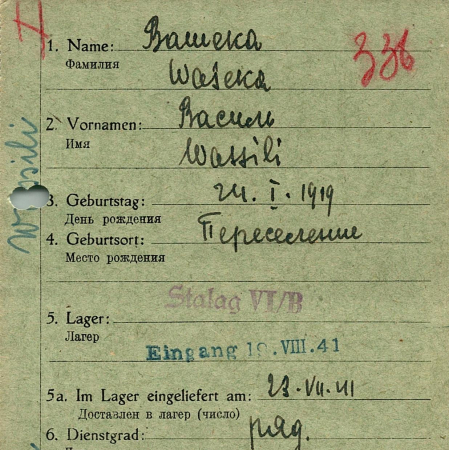 336
1. Name: Вашека
Фамилия
Waseka
2. Vornamen: Василь
Имя
Wassili
3. Geburtstag: 24. I. 1919
День рождения
4. Geburtsort: Переселение
Место рождения
Stalag VI/B
5. Lager:
Лагерь
Eingang 19. VIII. 41
5a. Im Lager eingeliefert am: 23-VII-41
Доставлен в лагерь (число)
6. Dienstgrad: ряд.
Wassili